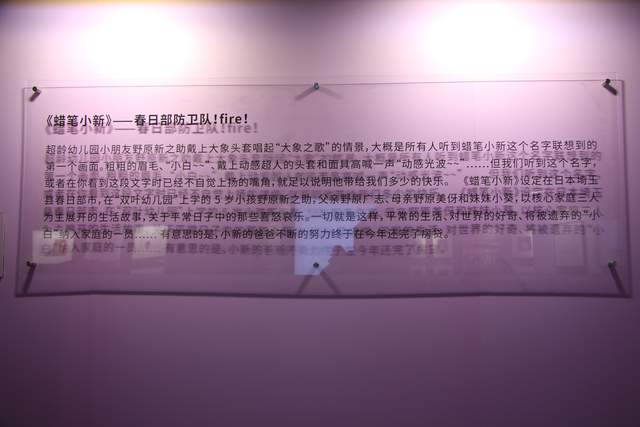 《蜡笔小新》——春日部防卫队!fire!
超龄幼儿园小朋友野原新之助戴上大象头套唱起“大象之歌”的情景,大概是所有人听到蜡笔小新这个名字联想到的
第一个画面。粗粗的眉毛、“小白~~”、戴上动感超人的头套和面具高喊一声“动感光波~~”……但我们听到这个名字,
或者在你看到这段文字时已经不自觉上扬的嘴角,就足以说明他带给我们多少的快乐。 《蜡笔小新》设定在日本埼玉
县春日部市,在“双叶幼儿园”上学的5岁小孩野原新之助,父亲野原广志、母亲野原美伢和妹妹小葵,以核心家庭三人
为主展开的生活故事,关于平常日子中的那些喜怒哀乐。一切就是这样,平常的生活、对世界的好奇、将被遗弃的“小
白”纳入家庭的一员……有意思的是,小新的爸爸不断的努力终于在今年还完了房贷。